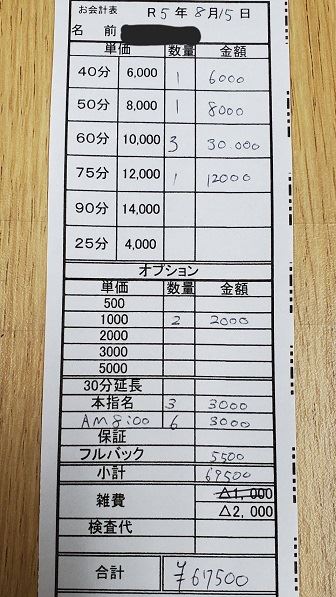 お会計表 R5年8月15日
名 前
単価 数量 金額
40分 6,000 1 6000
50分 8,000 1 8000
60分 10,000 3 30.000
75分 12,000 1 12000
90分 14,000
25分 4,000
オプション
単価 数量 金額
500
1000 2 2000
2000
3000
5000
30分延長
本指名 3 3000
AM8:00 6 3000
保証
フルバック 5500
小計 69500
雑費 △1,000
△2,000
検査代
合計 ¥67500